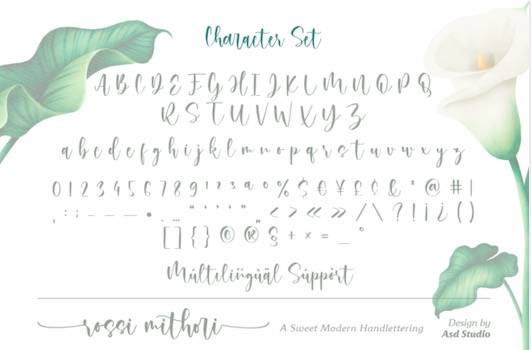 Character Set
A B C D E F G H I J K L M N O P Q
R S T U V W X Y Z
a b c d e f g h i j k l m n o p q r s t u v w x y z
0 1 2 3 4 5 6 7 8 9 ¹ ² ³ ª º % $ € ¥ £ ¢ & * @ # |
, : ; - – — • . … " " ' ' ‚ „ ‹ › « » / \ ? ! ¡ ¿ ( )
[ ] { } © ® § + × = _ °
Múltelíñgüãl Súppört
rossi mithori
A Sweet Modern Handlettering
Design by
Asd Studio